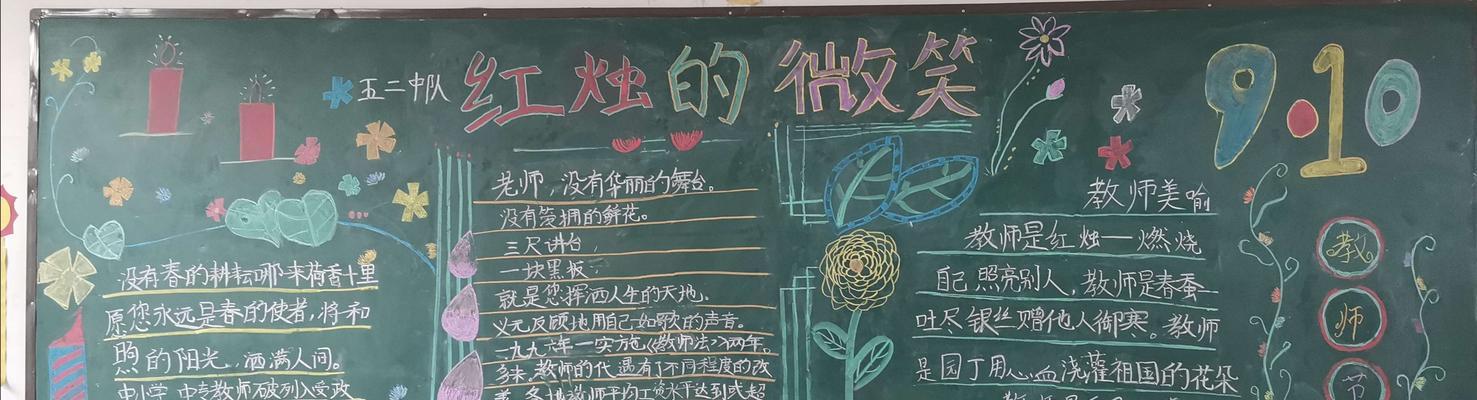 五二中队
红烛的微笑
9.10
没有春的耕耘哪来荷香十里
愿您永远是春的使者,将和
煦的阳光,洒满人间。
中小学 中专教师破列入受政
老师,没有华丽的舞台。
没有簇拥的鲜花。
三尺讲台,
一块黑板,
就是您挥洒人生的天地。
义无反顾地用自己如歌的声音。
实施《教师法》两年
多来,教师的代遇有了不同程度的改
各地教师平均工资水平达到或超
教师美喻
教师是红烛——燃烧
自己照亮别人,教师是春蚕
吐尽银丝赠他人御寒。教师
是园丁用心血浇灌祖国的花朵
教
师
节